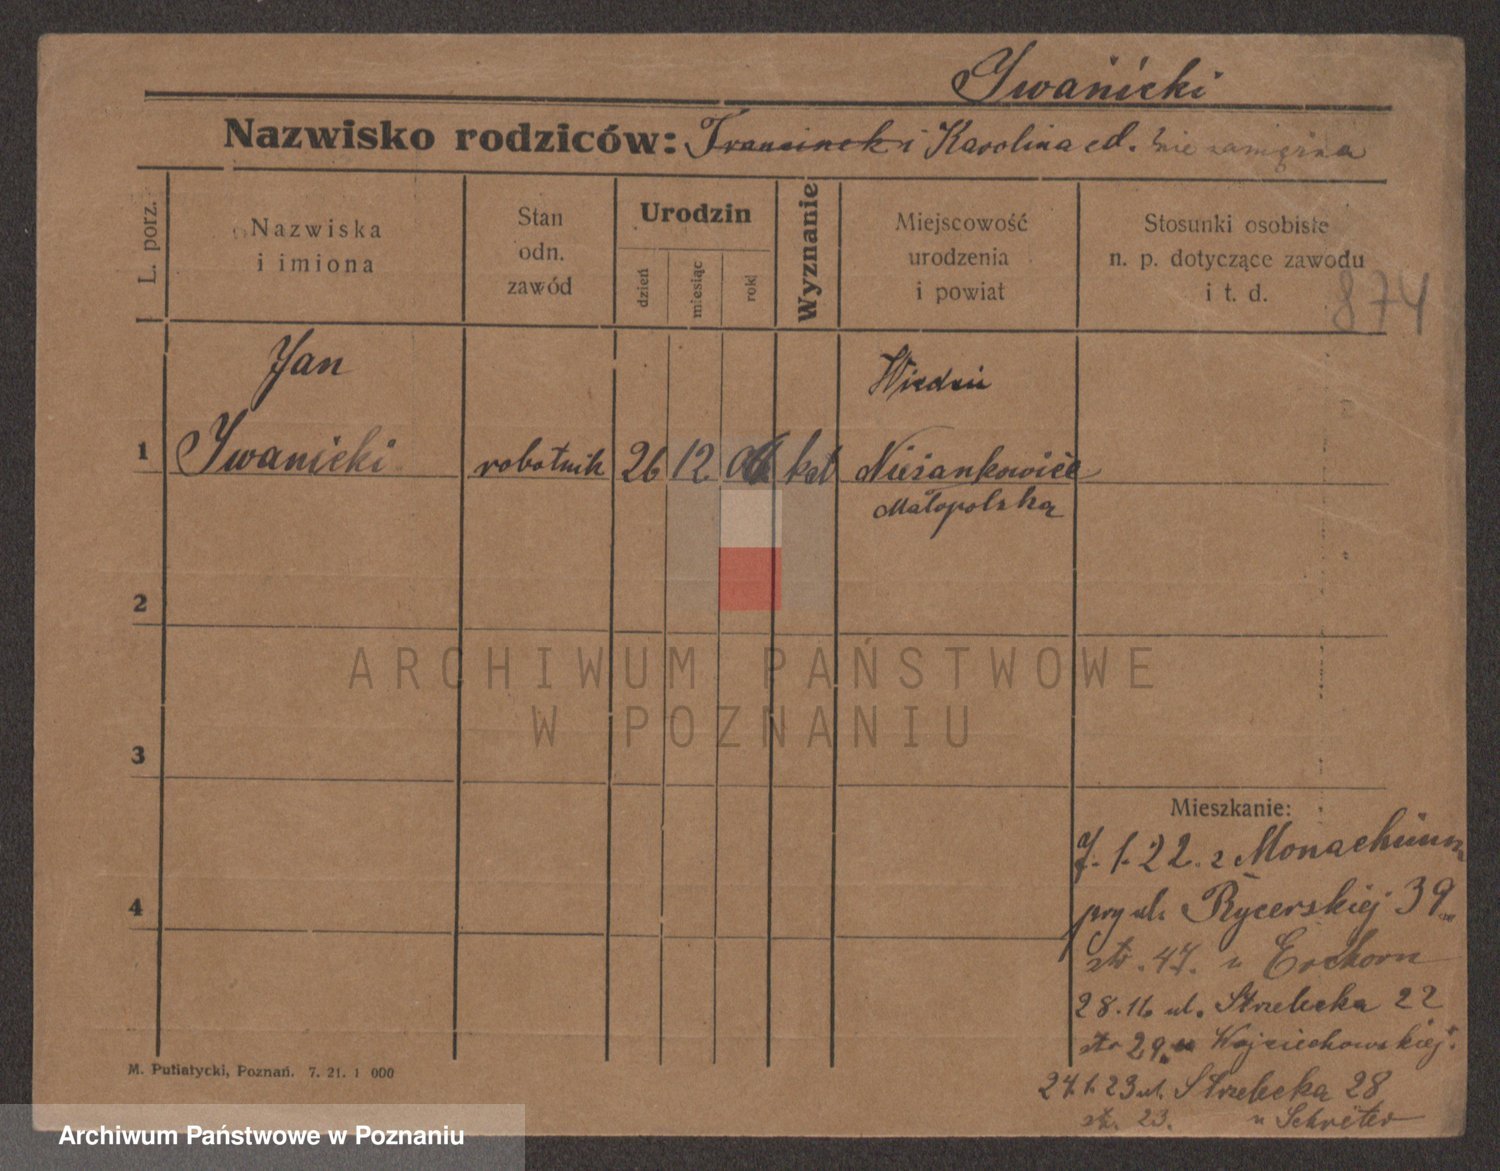 Iwanicki
Nazwisko rodziców: Franciszek i Karolina ed. niezamężna
L. porz.
Nazwiska
i imiona
Stan
odn.
zawód
Urodzin
dzień
miesiąc
rok
Wyznanie
Miejscowość
urodzenia
i powiat
Stosunki osobiste
n. p. dotyczące zawodu
i t. d.
874
Jan
Wiedeń
1
Iwanicki
robotnik
26
12
kat
Niżankowice
Małopolska
2
ARCHIWUM PAŃSTWOWE
W POZNANIU
3
Mieszkanie:
7. 1. 22. z Monachium
4
przy ul. Rycerskiej 39
str. 47. u
28. 11. ul. Strzelecka 22
str 29. u Wojciechowskiej.
24. 1. 23 ul. Strzelecka 28
str. 23. u Schröter
M. Putiatycki, Poznań. 7. 21. 1 000
Archiwum Państwowe w Poznaniu